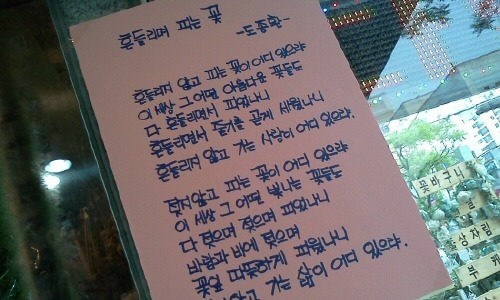 흔들리며 피는 꽃
-도종환-
흔들리지 않고 피는 꽃이 어디 있으랴
이 세상 그 어떤 아름다운 꽃들도
다 흔들리면서 피었나니
흔들리면서 줄기를 곧게 세웠나니
흔들리지 않고 가는 사랑이 어디 있으랴.
젖지않고 피는 꽃이 어디 있으랴
이 세상 그 어떤 빛나는 꽃들도
다 젖으며 젖으며 피었나니
바람과 비에 젖으며
꽃잎 따뜻하게 피웠나니
않고 가는 삶이 어디 있으랴.
꽃바구니